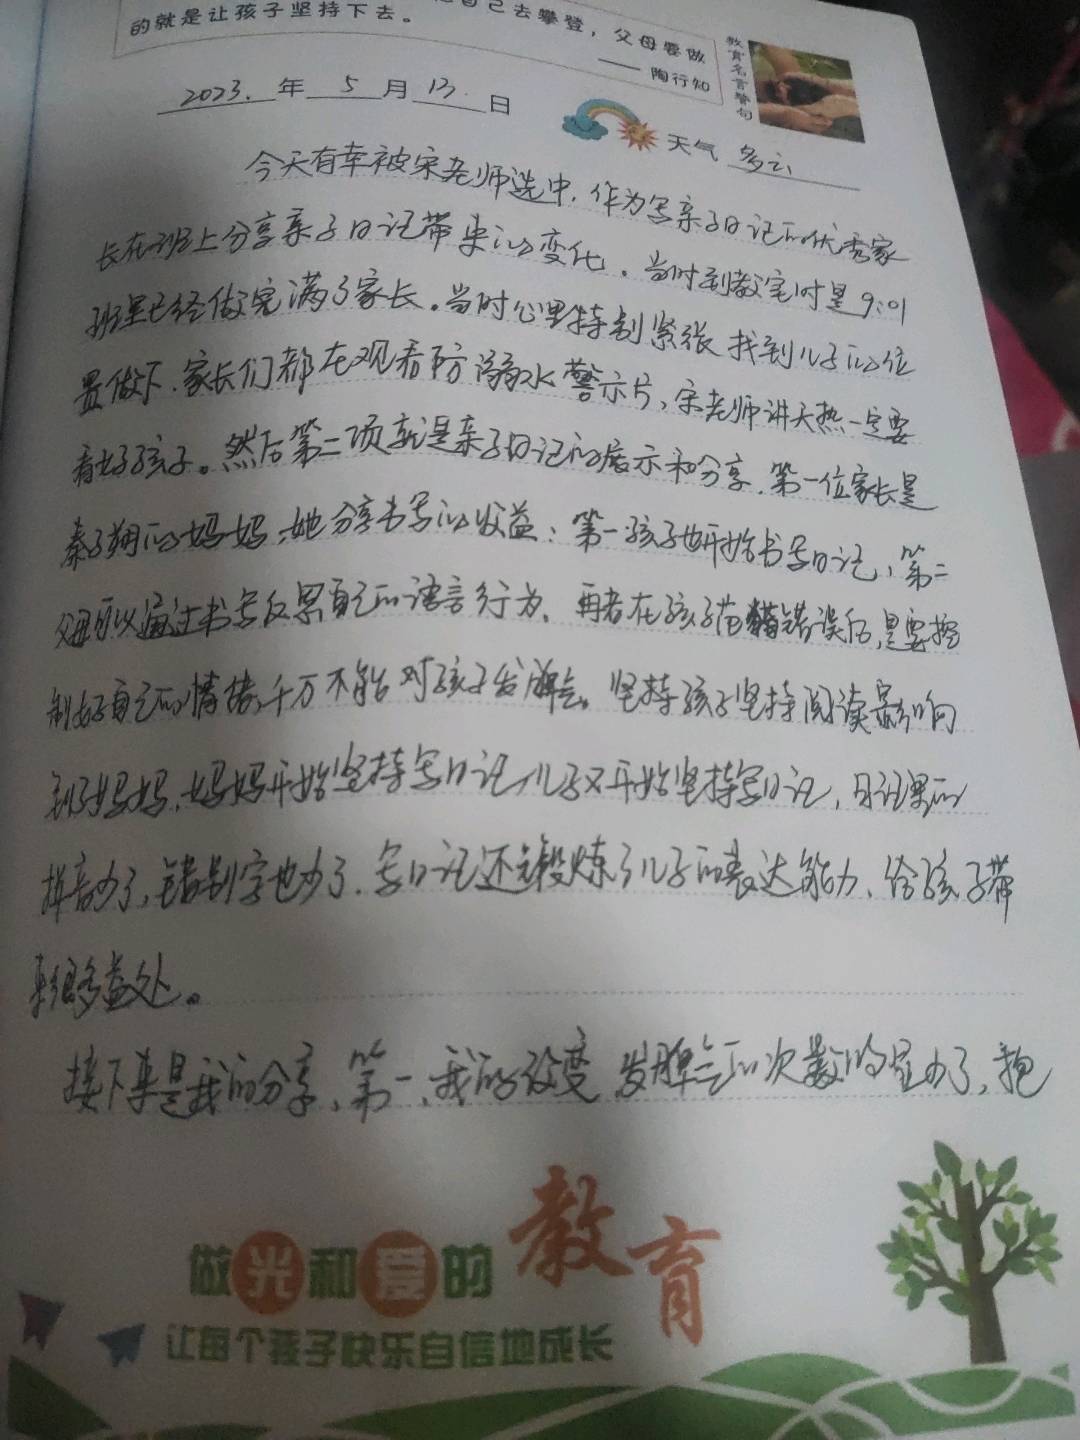 自己去攀登，父母要做
的就是让孩子坚持下去。
—— 陶行知
教育名言警句
2023.年 5 月 13. 日
天气 多云
今天有幸被宋老师选中，作为写亲子日记的优秀家
长在班上分享亲子日记带来的变化。当时到教室时是9:01
班里已经做完满了家长。当时心里特别紧张 找到儿子的位
置做下，家长们都在观看防溺水警示片，宋老师讲天热一定要
看好孩子。然后第二项就是亲子日记的展示和分享，第一位家长是
秦子翔的妈妈，她分享书写的收益：第一孩子也开始书写日记，第二
父母可以通过书写反思自己的语言行为，再者在孩子错误后，是要控
制好自己的情绪，千万不能对孩子发脾气。坚持孩子坚持阅读影响
到了妈妈，妈妈开始坚持写日记，儿子又开始坚持写日记，日记里的
拼音少了，错别字也少了，写日记还锻炼了儿子的表达能力，给孩子带
来很多益处。
接下来是我的分享，第一，我的改变 发脾气的次数明显少了，抱
做光和爱的教育
让每个孩子快乐自信地成长